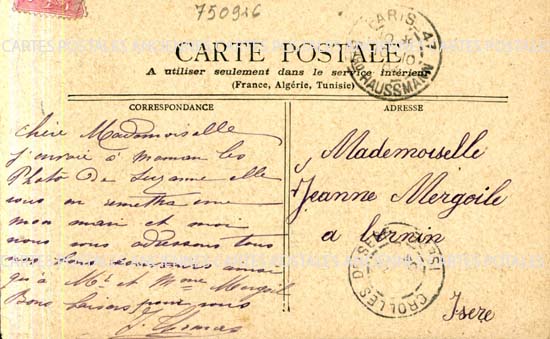 750926
PARIS 47
Bd HAUSSMANN
CARTE POSTALE
A utiliser seulement dans le service intérieur
(France, Algérie, Tunisie)
CORRESPONDANCE
chère Mademoiselle
j'envoie à maman les
Photo De Suzanne elle
vous en remettra une
mon mari et moi
nous vous adressons tous
ainsi
qu'à Mr et Mme Mergoil
Bons baisers pour vous
ADRESSE
Mademoiselle
Jeanne Mergoile
a Bernin
CROLLES
ISERE
Isere